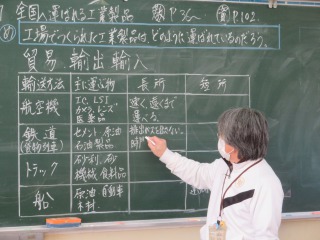 全国へ運ばれる工業製品 P102
⑧ 工場でつくられた工業製品は、どのように運ばれているのだろう。
貿易 輸出 輸入
輸送方法 主に運ぶ物 長所 短所
航空機 IC、LSI カメラ、レンズ 医薬品 速く、遠くまで運べる。
鉄道(貨物列車) セメント 原油 石油製品 排出ガスを出さない。時
トラック 砂利、砂 機械 食料品
船 原油 自動車 木材